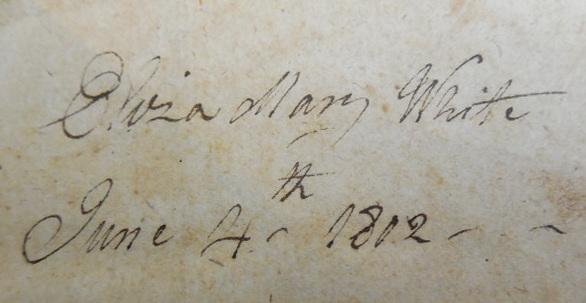 Eliza Mary White
June 4th 1802 - -